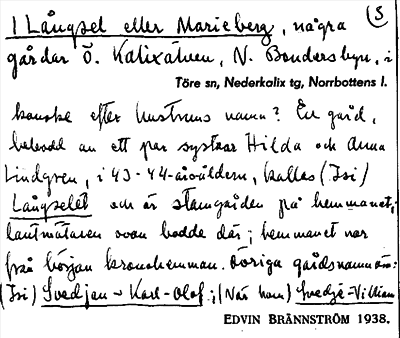 1 Långsel eller Marieberg, några (3
gårdar Ö. Kalixälven, N. Bondersbyn, i
Töre sn, Nederkalix tg, Norrbottens l.
kanske efter hustruns namn? En gård,
bebodd av ett par systrar Hilda och Anna
Lindgren, i 43-44-årsåldern, kallas (Isi)
Långselet och är stamgården på hemmanet;
lantmätaren ovan bodde där; hemmanet var
från början kronohemman. Övriga gårdsnamn äro:
(Isi) Svedjan - Karl-Olof; (När hom) Svedje-Villiam
EDVIN BRÄNNSTRÖM 1938.